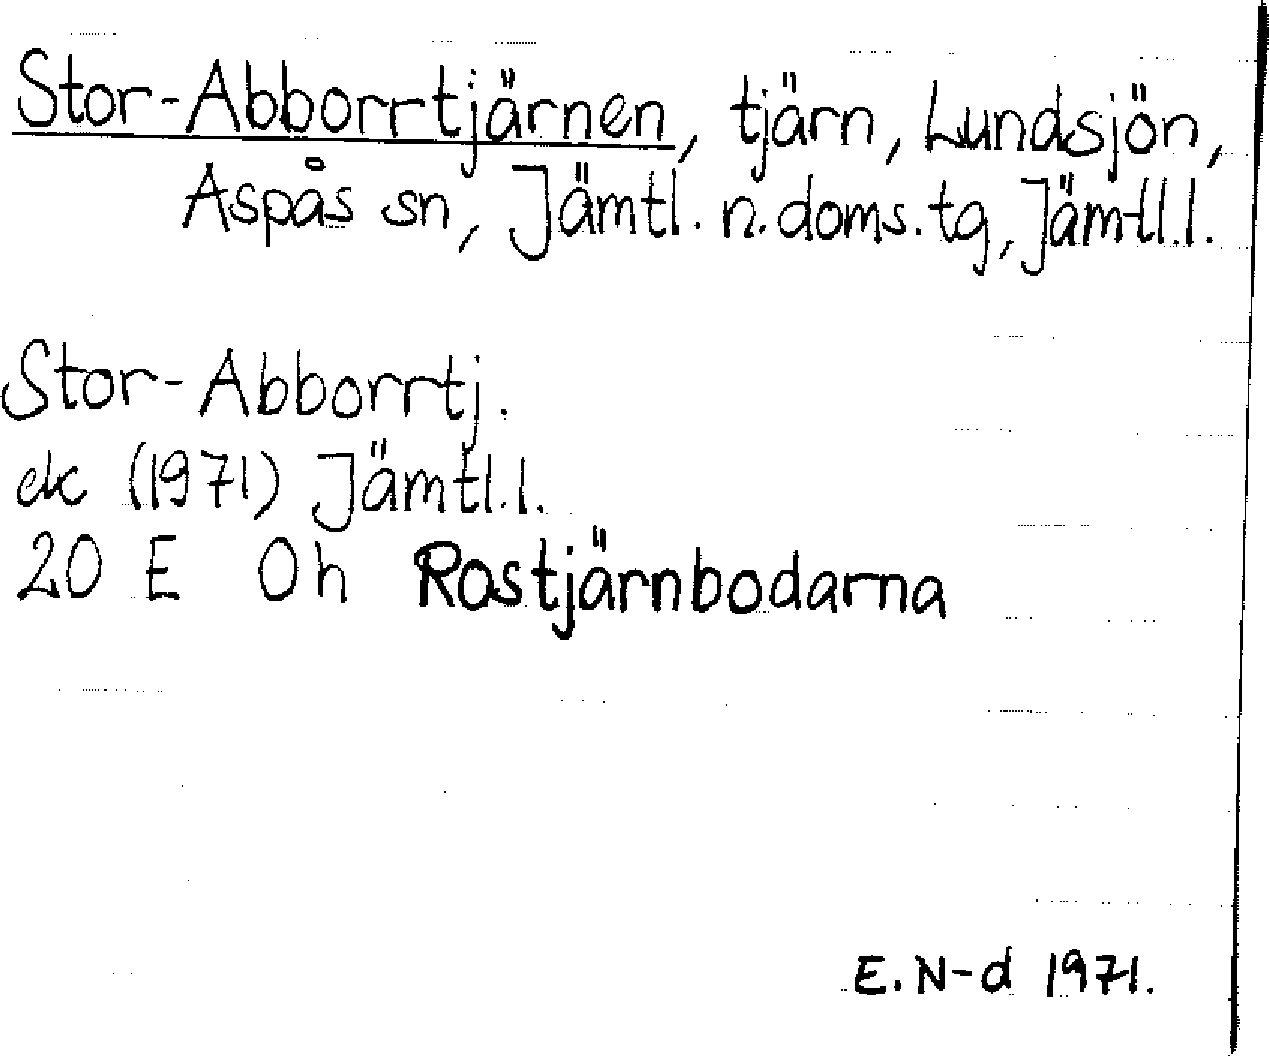 Stor-Abborrtjärnen, tjärn, Lundsjön,
Aspås sn, Jämtl. n. doms. tg, Jämtl.l.
Stor-Abborrtj.
ek (1971) Jämtl.l.
20 E 0h Rostjärnbodarna
E. N-d 1971.